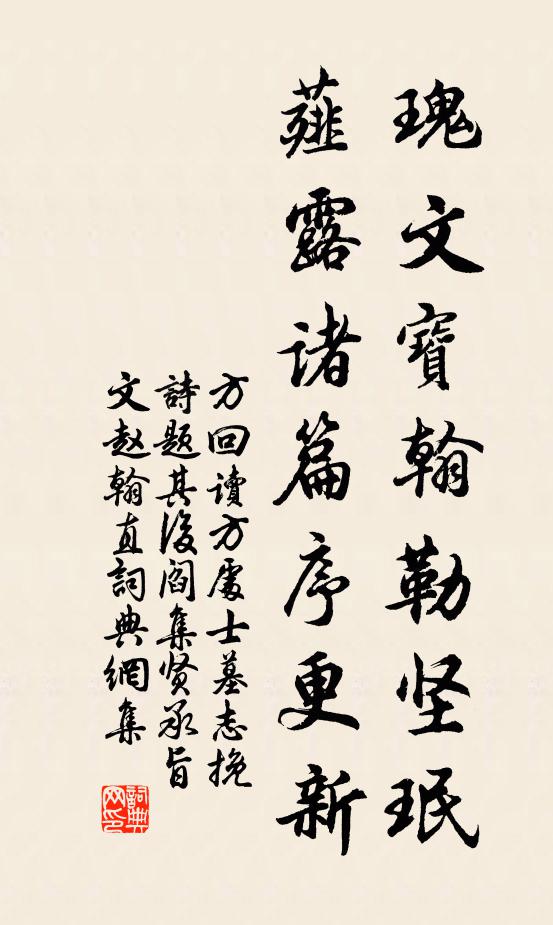 瑰文寶翰勒坚珉
薤露诸篇序更新
方回讀方處士墓志挽
詩題其後阎集贤承旨
文赵翰直詞典網集
詞典网印